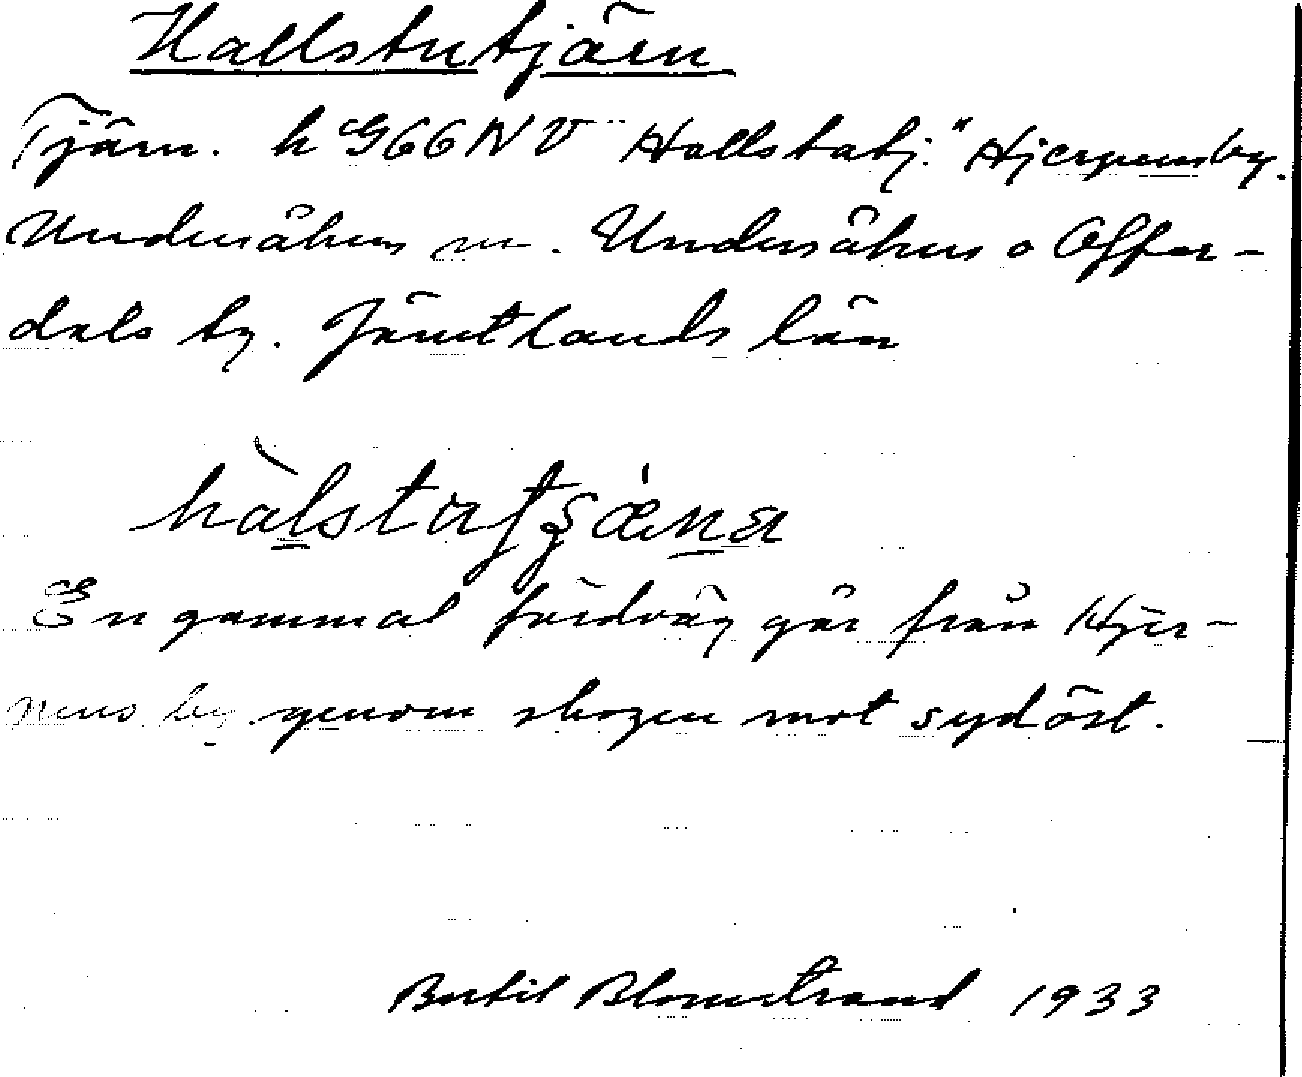 Hallstutjärn
Tjärn. k G66NV "Hallstatj." Hjerpensby.
Undersåkers sn. Undersåkers o Offer-
dals tg. Jämtlands län
En gammal färdväg går från Hjer-
pens by genom skogen mot sydöst.
Bertil Blomstrand 1933